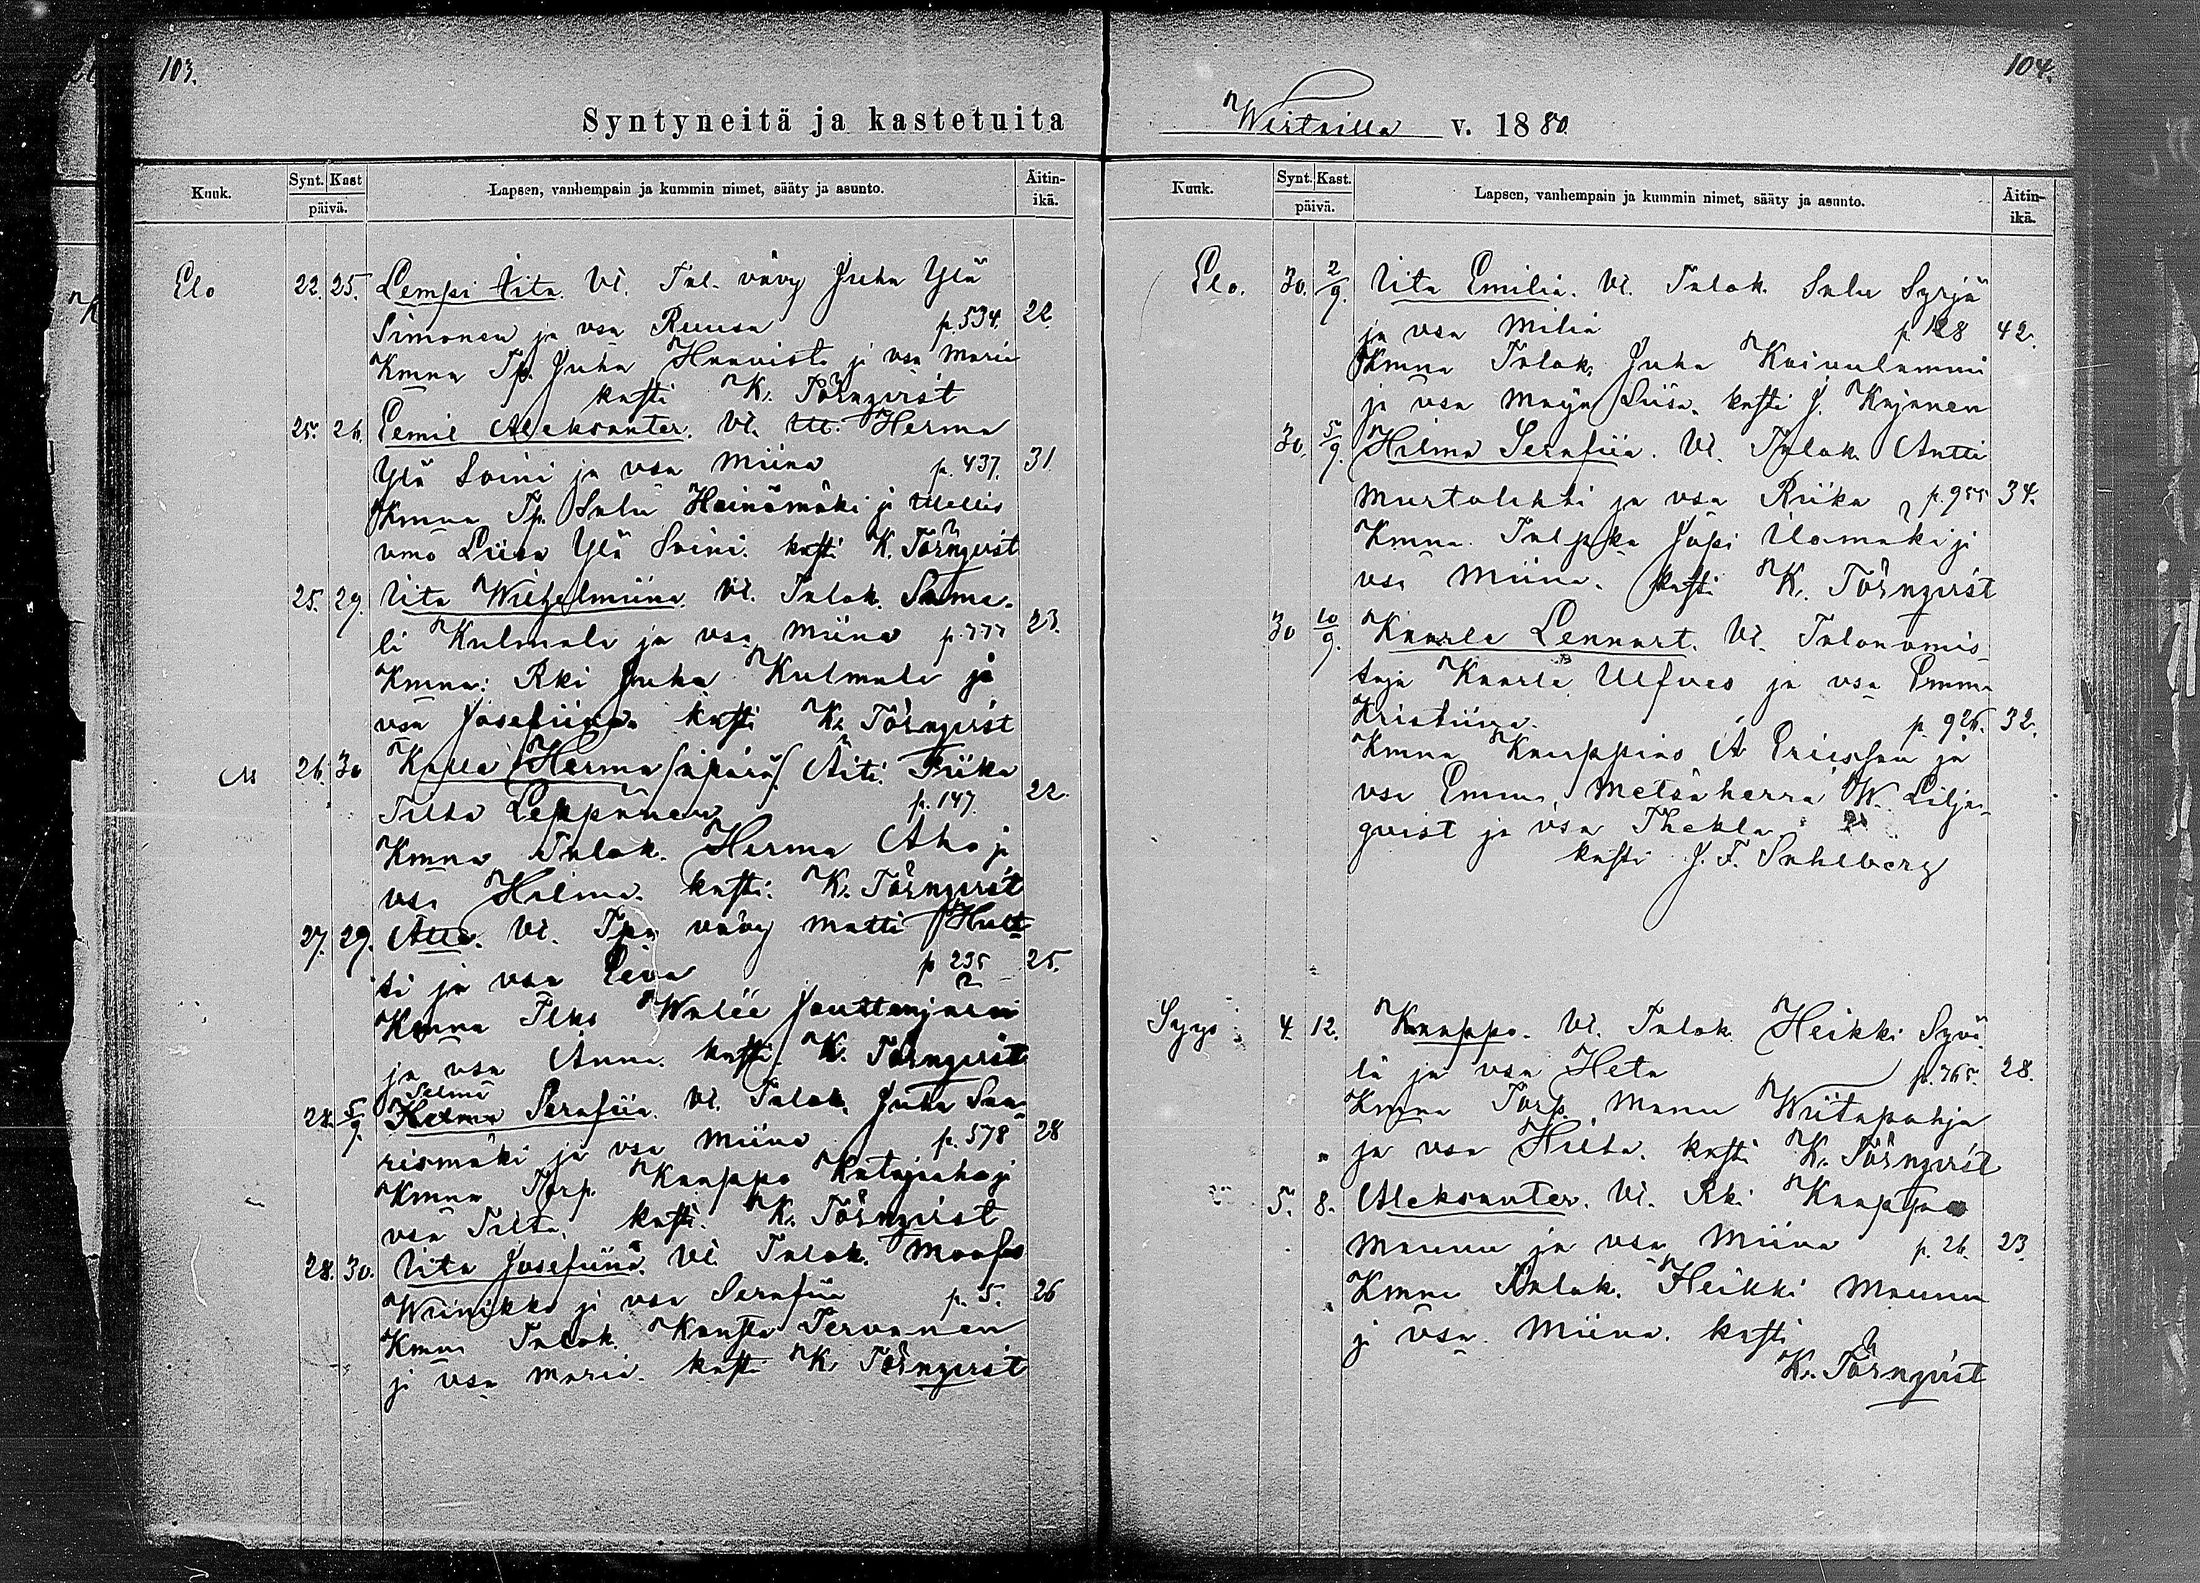 103.
Syntyneitä ja kastetuita
Kuuk.
Synt. Kast
päivä.
Lapsen, vanhempain ja kummin nimet, sääty ja asunto.
Äitin-
ikä.
Elo 22. 25. Lempi Iita. Vl. Tal. vävy Juha Ylä
Simonen ja vsa Ruusa p. 534. 22.
Kmna Tp. Juha Haavisto ja vsa Maria
kasti K. Törnqvist
25. 26. Eemil Aleksanter. Vl. Herma
Ylä Soini ja vsa Miina p. 437. 31
Kmna Tp. Salu Heinämäki ja
vmo Liisa Ylä Soini. kasti K. Törnqvist
25. 29. Iita Wilhelmiina. Vl. Talok. Same-
li Kulmala ja vsa Miina p. 777 23.
Kmna: Rki Juha Kulmala ja
vsa Josefiina kasti K. Törnqvist
26. 30 Kalle Herma /äpärä/ Äiti Fiika
Tilta Leppänen p. 147. 22.
Kmna Talok. Herma Aho ja
vsa Hilma. kasti: K. Törnqvist
27. 29. Vl. vävy Matti Hut-
ti ja vsa Eeva p 235 25.
2
Kmna Jouttenjärvi
ja vsa Anna. kasti K. Törnqvist
Selma
28. 5/9. Serafiia. Vl. Talok. Juha Saa-
rismäki ja vsa Miina p. 578 28
Kmna Torp. Kaappo Katajaaho ja
vsa Tilta. kasti. K. Törnqvist
28. 30. Iita Josefiina. Vl. Talok.
Wiinikka ja vsa Serafiia p. 5. 26
Kmna Talok. Kusta Tervanen
ja vsa Maria. kasti K. Törnqvist
104.
Wirtailla v. 1880.
Kuuk.
Synt. Kast.
päivä.
Lapsen, vanhempain ja kummin nimet, sääty ja asunto.
Äitin-
ikä.
Elo. 30. 2/9. Iita Emilia. Vl. Talok. Salu Syrjä
ja vsa Milia p. 128 42.
Kmna Talok. Juha Koivulammi
ja vsa Maija Liisa. kasti J. Kajanen
30. 5/9. Hilma Serafiia. Vl. Talok. Antti
Murtolahti ja vsa Riika p. 955 34.
Kmna. Jopi Ulamäki ja
vsa Miina. kasti K. Törnqvist
30 10/9. Kaarle Lennart. Vl. Talonomis-
taja Kaarle Ulfves ja vsa Emma
Kristiina. p. 926. 32.
Kmna Kauppias A Ericsson ja
vsa Emma, Metsäherra W. Lilje-
qvist ja vsa Thekla
kasti J. F. Sahlberg
Syys 4 12. Kaappo. Vl. Talok. Heikki Syvä
lä ja vsa Heta p. 765. 28.
Kmna Torp. Manu Wiitapohja
ja vsa Hilta. kasti K. Törnqvist
5. 8. Aleksanter. Vl. Rki Kaappo
Maunu ja vsa Miina p. 26. 23.
Kmna Talok. Heikki Maunu
ja vsa Miina. kasti
K. Törnqvist